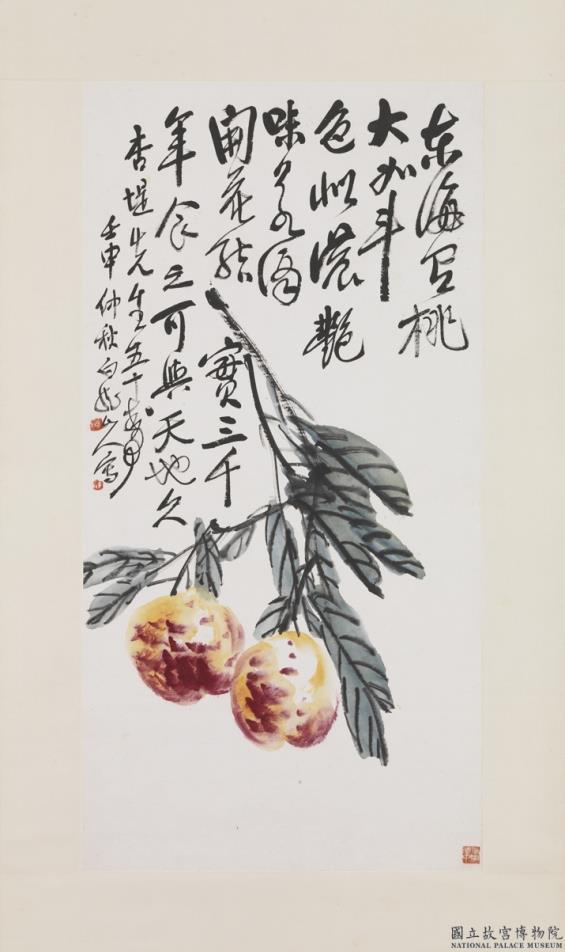 东海桃
大如斗
色似濃艷
味
開花結實三千
年食之可與天地久
杏堤先生五十壽
壬申仲秋白龍山人寫
國立故宮博物院
NATIONAL PALACE MUSEUM